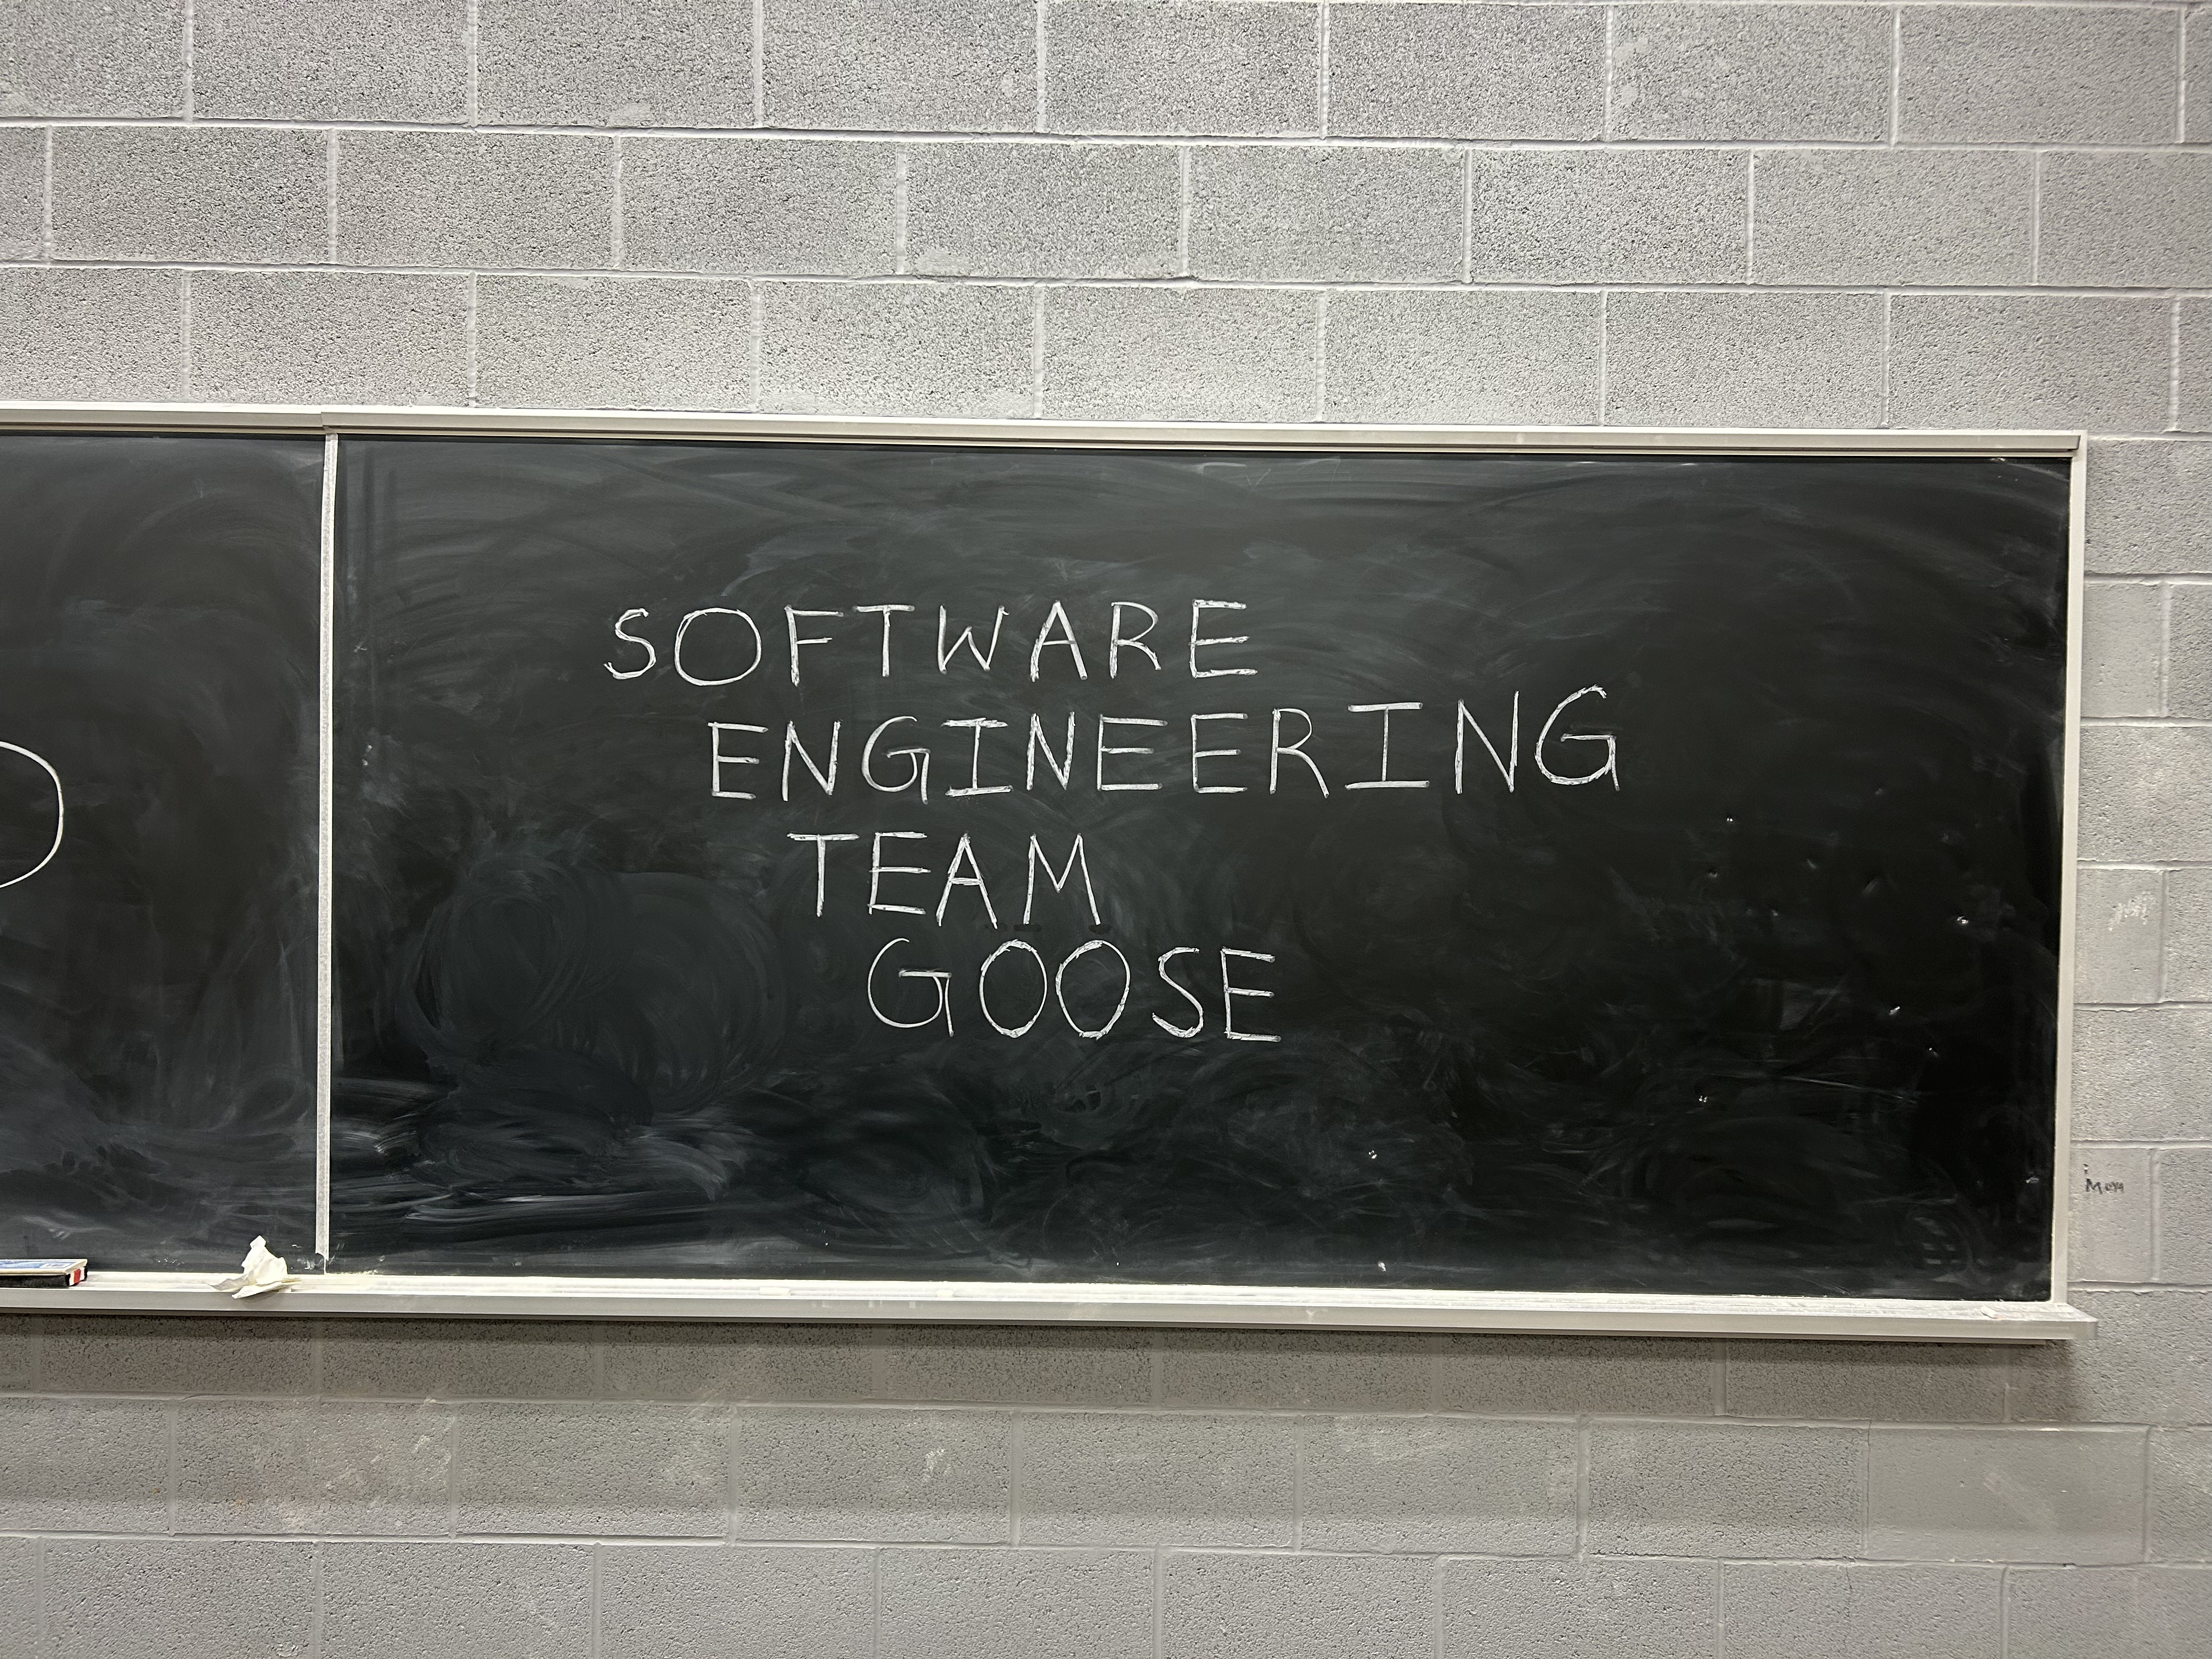 SOFTWARE
ENGINEERING
TEAM
GOOSE